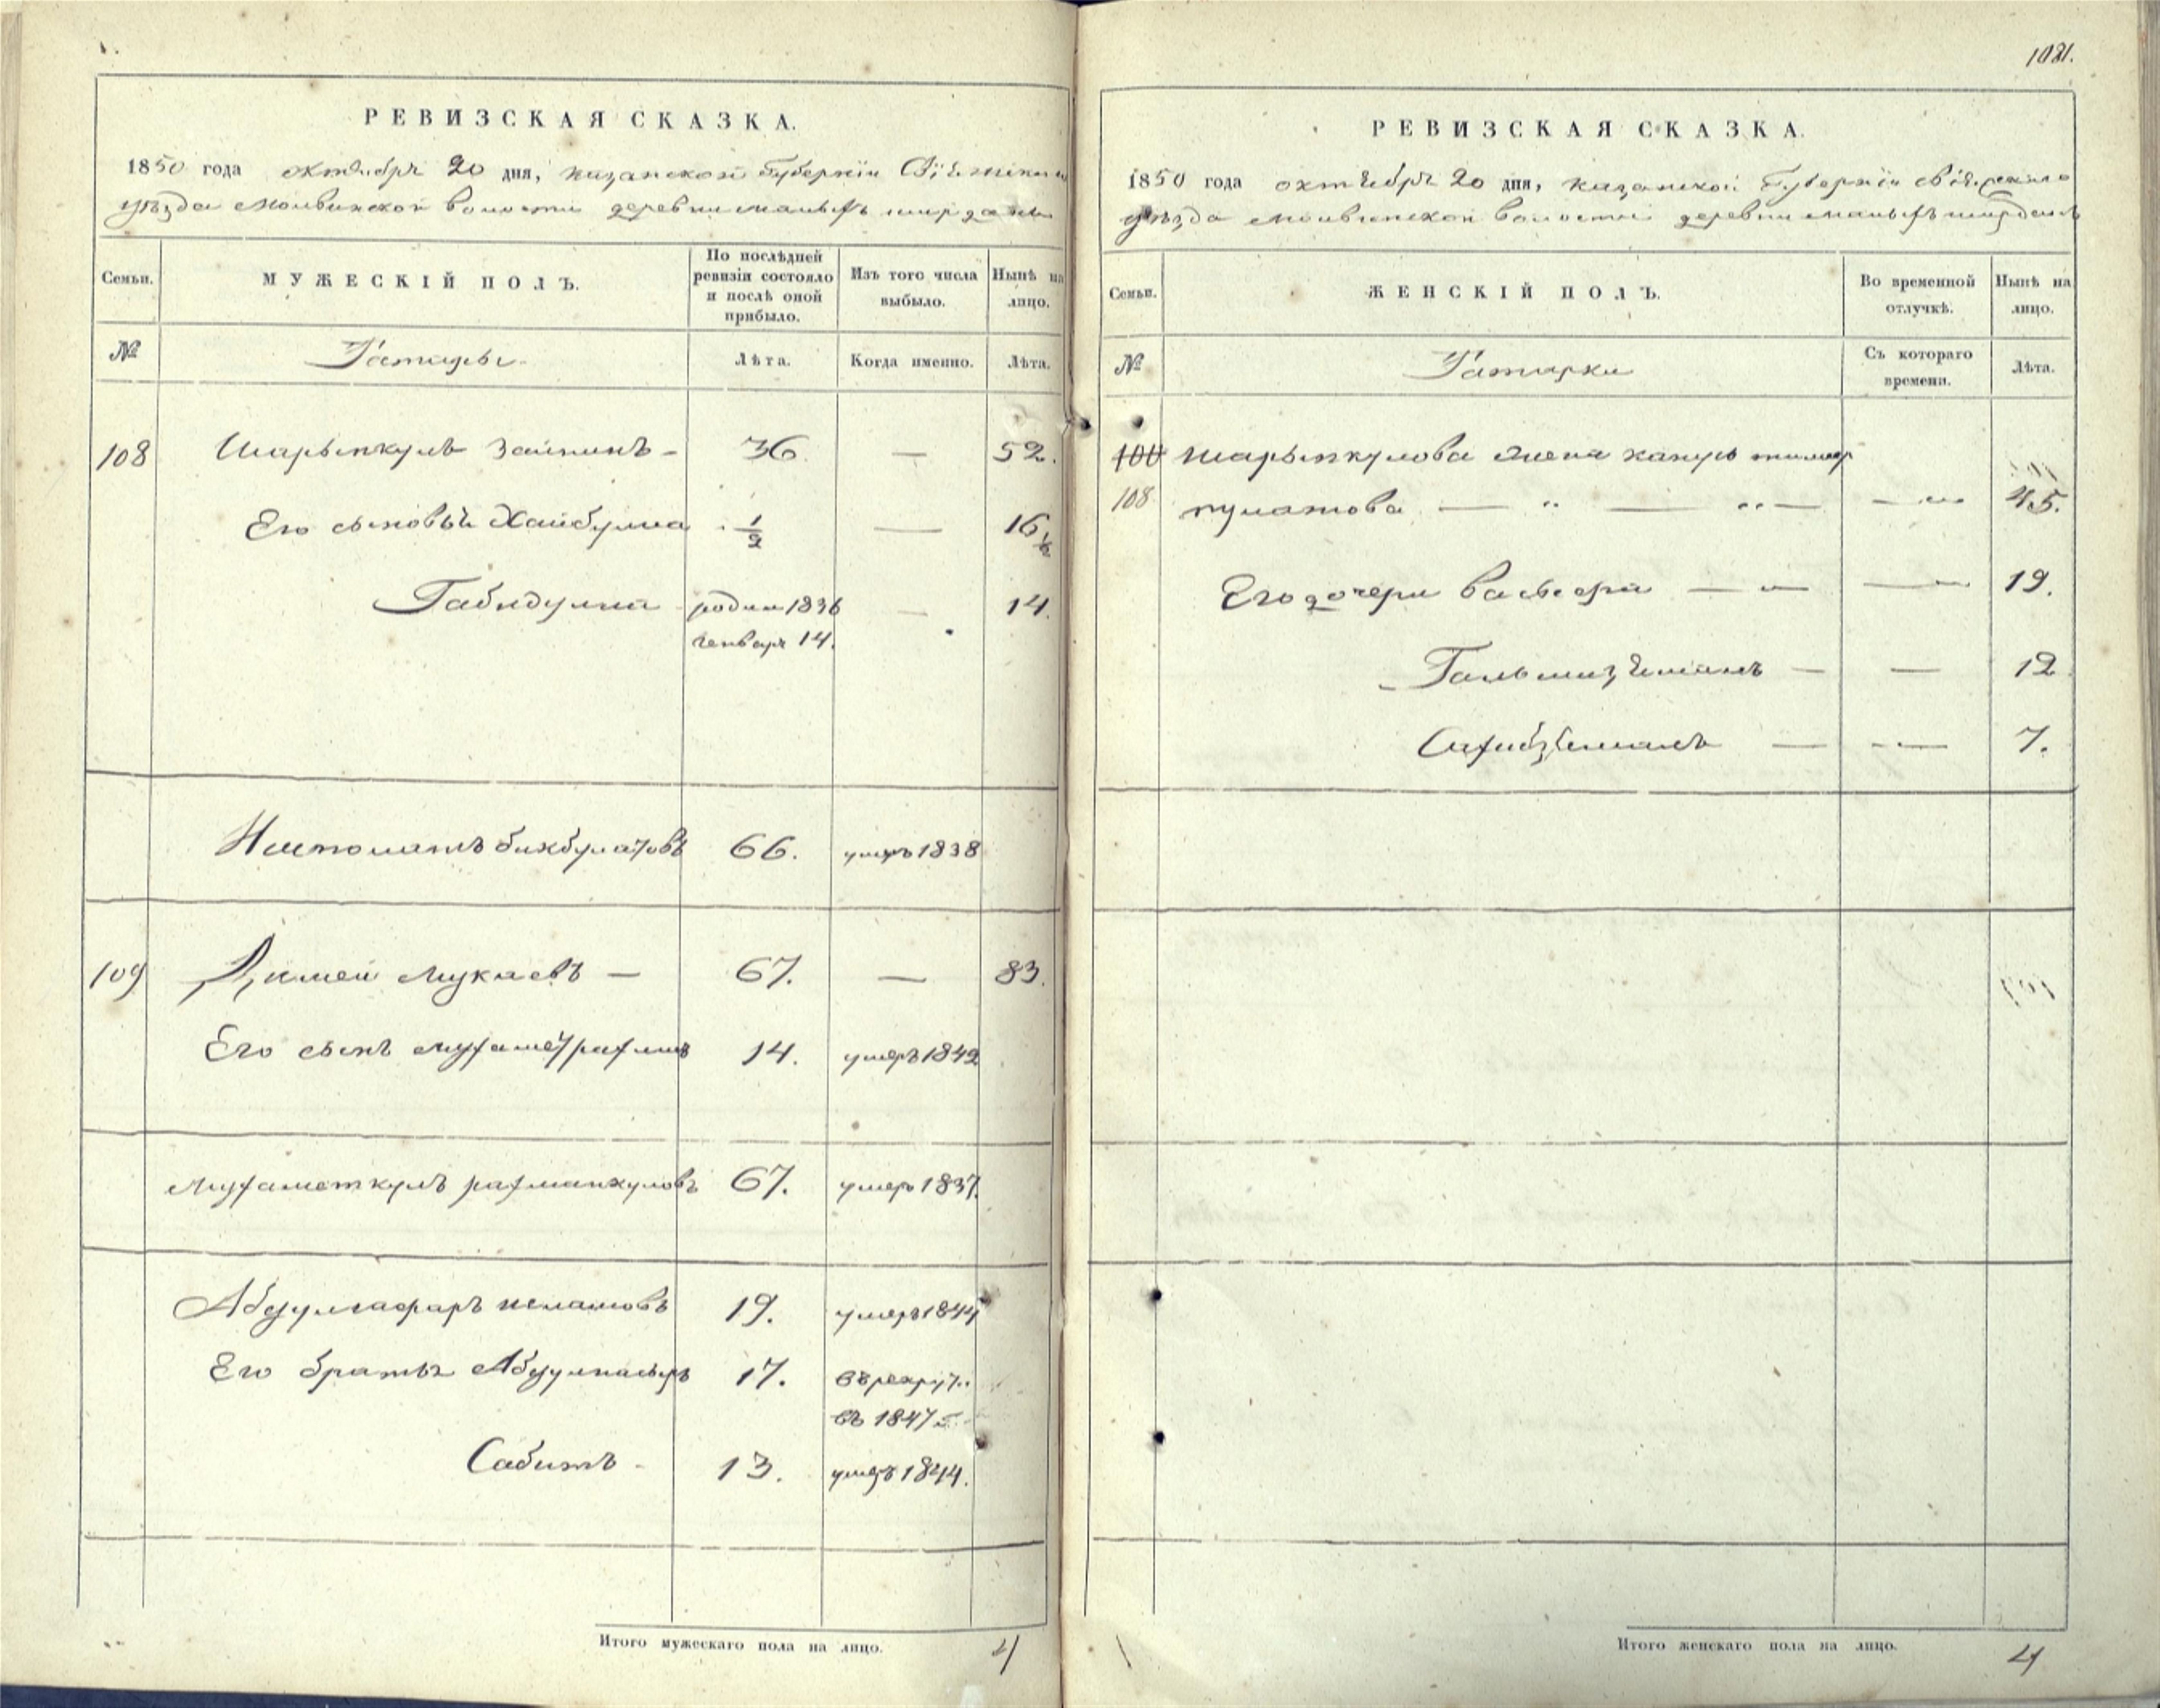 РЕВИЗСКАЯ СКАЗКА.
1850 года октября 20 дня, казанской Губернiи Свiяжскаго
уѣзда Молвинской волости деревни малыхъ ширданъ
Семьи.
МУЖЕСКІЙ ПОЛЪ.
По послѣдней ревизіи состояло и послѣ оной прибыло.
Изъ того числа выбыло.
Нынѣ на лицо.
№ Татары Лѣта. Когда именно. Лѣта.
108 Шарыпкулъ Заитинъ — 36. — 52.
Его сыновья Хайбулла 1/2 — 16 1/2
Габидулла родил 1836 — 14.
генваря 14.
Иштоматъ бикбулатовъ 66. умеръ 1838
109 мукаевъ — 67. — 83.
Его сынъ мухаметрахимъ 14. умеръ 1842
Мухаметкулъ рахманкуловъ 67. умеръ 1837.
Абдулгафаръ 19. умеръ 1844
Его братья Абдулнасыръ 17. въ рекрут.
въ 1847 г.
Сабитъ - 13. умеръ 1844.
Итого мужескаго пола на лицо. 4
1081.
РЕВИЗСКАЯ СКАЗКА.
1850 года октября 20 дня, казанской Губернiи свiяжскаго
уѣзда молвинской волости деревни малыхъ ширданъ
Семьи.
ЖЕНСКІЙ ПОЛЪ.
Во временной отлучкѣ.
Нынѣ на лицо.
№ Татарки Съ котораго времени. Лѣта.
108 Шарыпкулова жена тимер
108 пулатова — — — 45.
Его дочери — — 19.
12
7.
Итого женскаго пола на лицо. 4